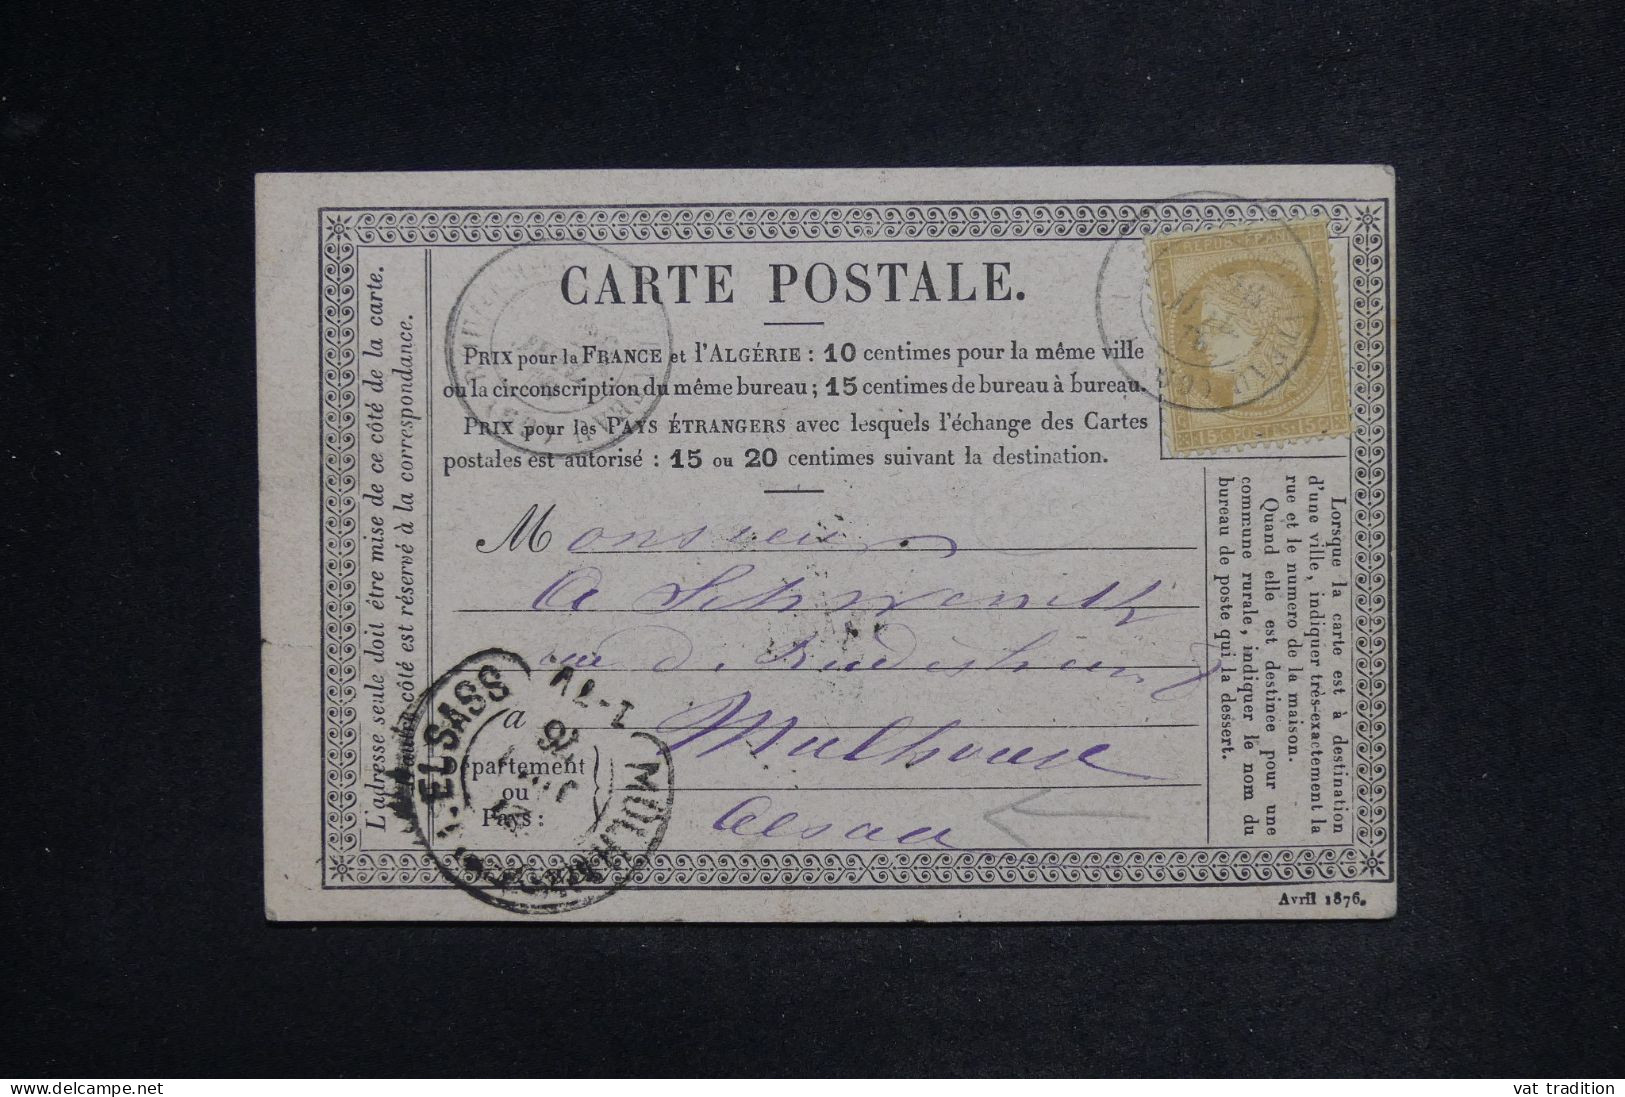 CARTE POSTALE.
PRIX pour la FRANCE et l'ALGÉRIE : 10 centimes pour la même ville
ou la circonscription du même bureau ; 15 centimes de bureau à bureau.
PRIX pour les PAYS ÉTRANGERS avec lesquels l'échange des Cartes
postales est autorisé : 15 ou 20 centimes suivant la destination.
L'adresse seule doit être mise de ce côté de la carte.
côté est réservé à la correspondance.
REPUB FRANC
15 c POSTES 15 c
Lorsque la carte est à destination
d'une ville, indiquer très-exactement la
rue et le numero de la maison.
Quand elle est destinée pour une
commune rurale, indiquer le nom du
bureau de poste qui la dessert.
Monsieur
A Schwonith
rue de
a Mulhouse
partement
ou
Pays :
Alsace
MULHAUSEN
ELSASS
Avril 1876.
vat tradition